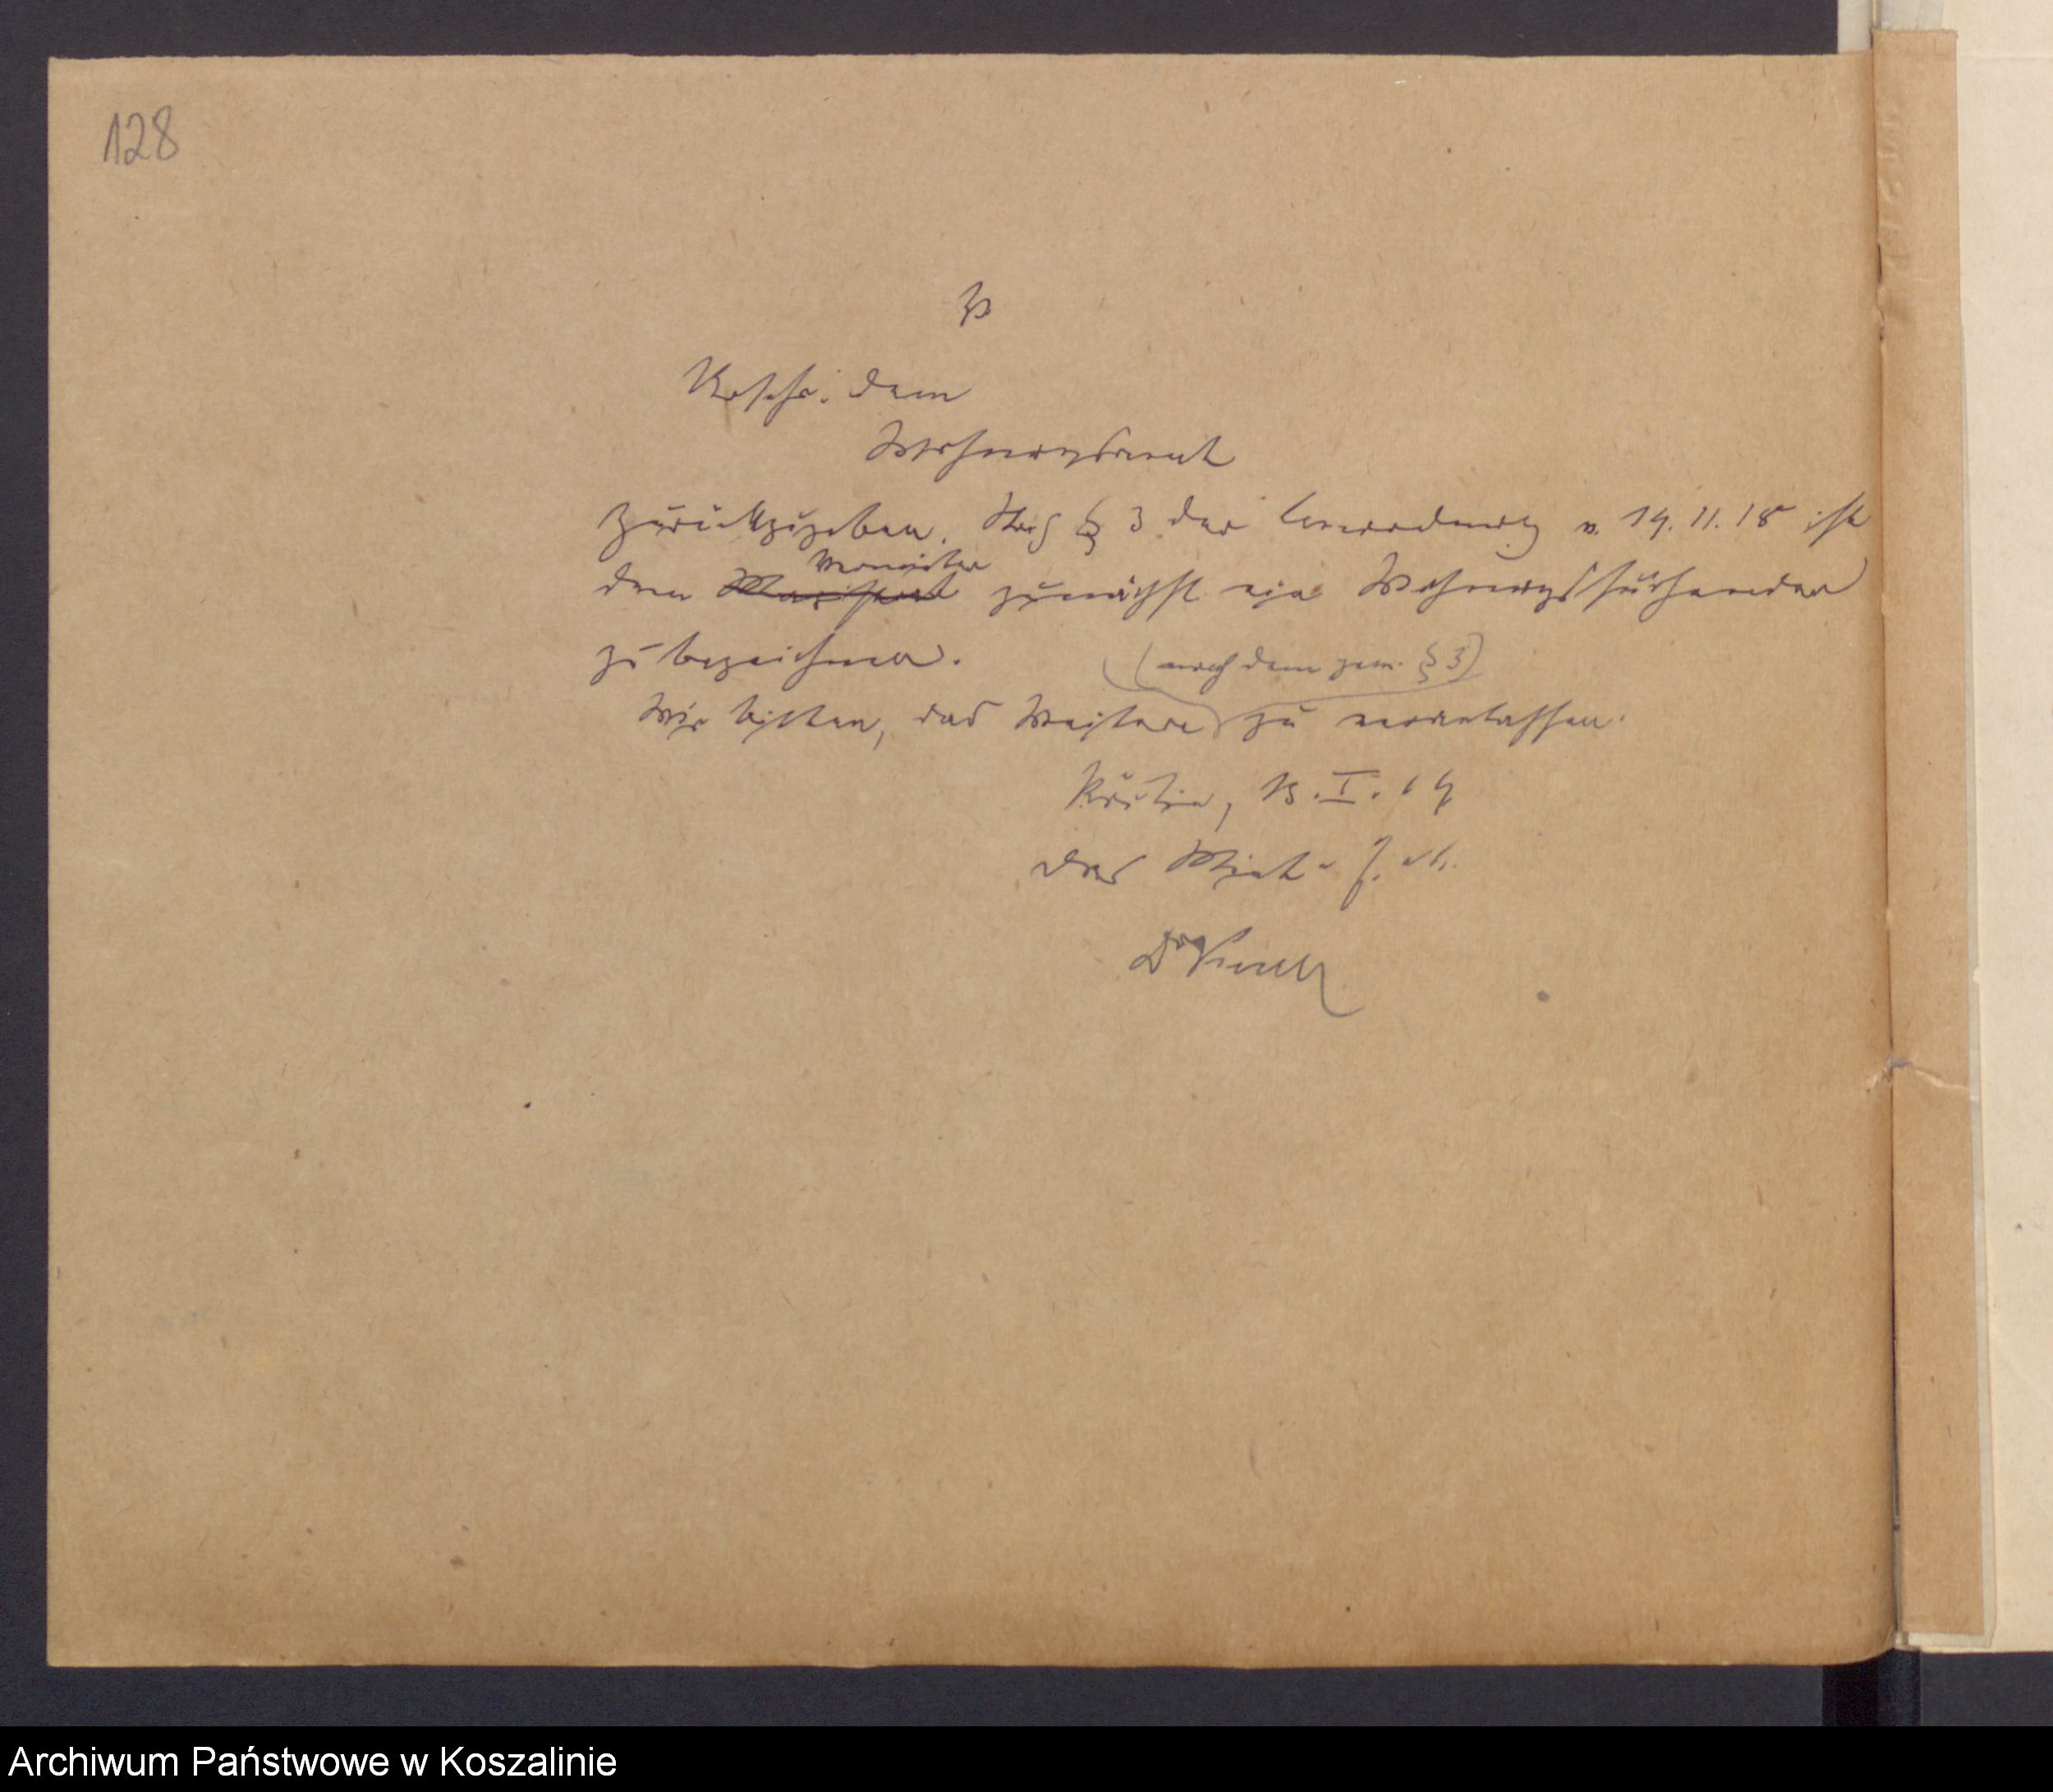 128
Urschr. dem
Wohnungsamt
zurückzugeben. Nach § 3 der Anordnung v. 14. 11. 18 ist
dem Vermieter zunächst ein Wohnungssuchender
zu bezeichnen.
(nach dem gem. § 3)
Wir bitten, das Weitere zu veranlassen.
Köslin, 13. I. 19
Das Miet-
Dr
Archiwum Państwowe w Koszalinie